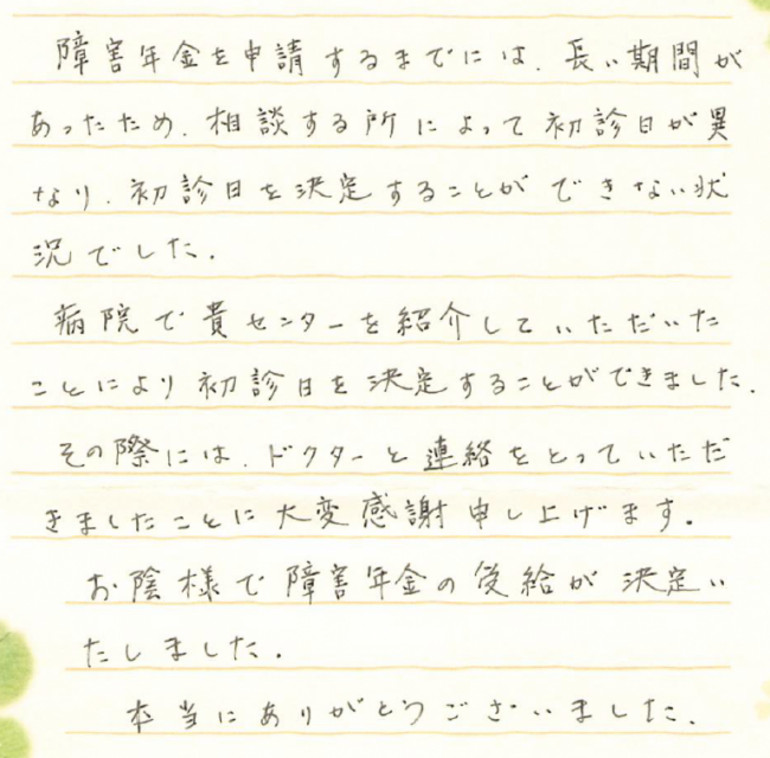 障害年金を申請するまでには、長い期間が
あったため、相談する所によって初診日が異
なり、初診日を決定することができない状
況でした。
病院で貴センターを紹介していただいた
ことにより初診日を決定することができました。
その際には、ドクターと連絡をとっていただ
きましたことに大変感謝申し上げます。
お陰様で障害年金の受給が決定い
たしました。
本当にありがとうございました。